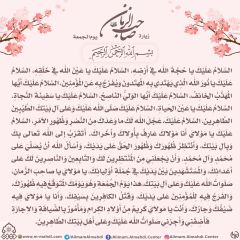 زيارة
صاحب الزمان
يوم الجمعة
بسم الله الرحمن الرحيم
السَّلامُ عَلَيْكَ يا حُجَّةَ اللهِ في أَرْضِهِ، السَّلامُ عَلَيْكَ يا عَيْنَ اللهِ في خَلْقِهِ، السَّلامُ
عَلَيْكَ يا نُورَ اللهِ الَّذي يَهْتَدي بِهِ الْمُهْتَدونَ وَيُفَرَّجُ بِهِ عَنِ الْمُؤْمِنينَ، السَّلامُ عَلَيْكَ أَيُّها
الْمُهَذَّبُ الْخائِفُ، السَّلامُ عَلَيْكَ أَيُّها الْوَلِيُّ النّاصِحُ، السَّلامُ عَلَيْكَ يا سَفينَةَ النَّجاةِ،
السَّلامُ عَلَيْكَ يا عَيْنَ الْحَياةِ، السَّلامُ عَلَيْكَ صَلَّى اللهُ عَلَيْكَ وَعَلى آلِ بَيْتِكَ الطَّيِّبينَ
الطّاهِرينَ، السَّلامُ عَلَيْكَ عَجَّلَ اللهُ لَكَ ما وَعَدَكَ مِنَ النَّصْرِ وَظُهُورِ الأَمْرِ، السَّلامُ
عَلَيْكَ يا مَوْلايَ أَنَا مَوْلاكَ عارِفٌ بِأُولاكَ وَأُخْراكَ، أَتَقَرَّبُ إِلَى اللهِ تَعالى بِكَ
وَبِآلِ بَيْتِكَ، وَأَنْتَظِرُ ظُهُورَكَ وَظُهُورَ الْحَقِّ عَلى يَدَيْكَ، وَأَسْأَلُ اللهَ أَنْ يُصَلِّيَ عَلى
مُحَمَّدٍ وَآلِ مُحَمَّدٍ، وَأَنْ يَجْعَلَني مِنَ الْمُنْتَظِرينَ لَكَ وَالتّابِعينَ وَالنّاصِرينَ لَكَ عَلى
أَعْدائِكَ، وَالْمُسْتَشْهَدينَ بَيْنَ يَدَيْكَ في جُمْلَةِ أَوْلِيائِكَ، يا مَوْلايَ يا صاحِبَ الزَّمانِ،
صَلَواتُ اللهِ عَلَيْكَ وَعَلى آلِ بَيْتِكَ، هذا يَوْمُ الْجُمُعَةِ وَهُوَ يَوْمُكَ الْمُتَوَقَّعُ فيهِ ظُهُورُكَ،
وَالْفَرَجُ فيهِ لِلْمُؤْمِنينَ عَلى يَدَيْكَ، وَقَتْلُ الْكافِرينَ بِسَيْفِكَ، وَأَنَا يا مَوْلايَ فيهِ
ضَيْفُكَ وَجارُكَ، وَأَنْتَ يا مَوْلايَ كَريمٌ مِنْ أَوْلادِ الْكِرامِ وَمَأْمُورٌ بِالضِّيافَةِ وَالإِجارَةِ
فَأَضِفْني وَأَجِرْني صَلَواتُ اللهِ عَلَيْكَ وَعَلى أَهْلِ بَيْتِكَ الطّاهِرينَ